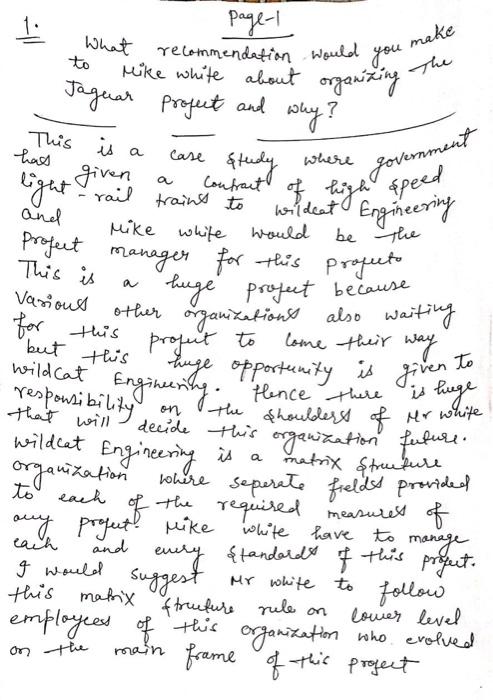 Page-1
1. What recommendation would you make
to Mike White about organizing the
Jaguar Project and why?
This is a case study where government
has given a contract of high speed
light-rail trains to wildcat Engineering
and Mike white would be the
project manager for this project.
This is a huge project because
various other organizations also waiting
for this project to come their way
but this huge opportunity is given to
wildcat Engineering. Hence there is huge
responsibility on the shoulders of Mr white
that will decide this organization future.
wildcat Engineering is a matrix structure
organization where seperate fields provided
to each of the required measures of
any project. Mike white have to manage
each and every standards of this project.
I would suggest Mr white to follow
this matrix structure rule on lower level
employees of this organization who evolved
on the main frame of this project